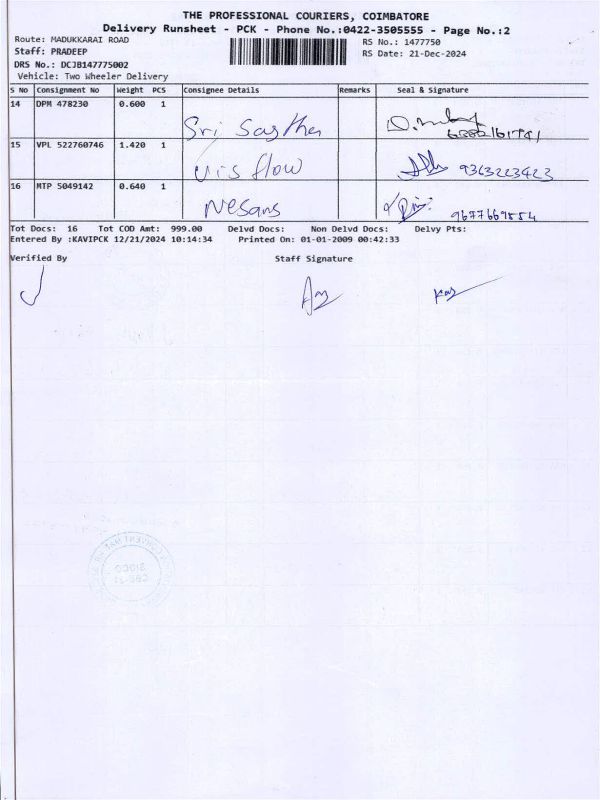 THE PROFESSIONAL COURIERS, COIMBATORE
Delivery Runsheet - PCK - Phone No.:0422-3505555 - Page No.:2
Route: MADUKKARAI ROAD
RS No.: 1477750
Staff: PRADEEP
RS Date: 21-Dec-2024
DRS No.: DCJB147775002
Vehicle: Two Wheeler Delivery
S No Consignment No Weight PCS Consignee Details Remarks Seal & Signature
14 DPM 478230 0.600 1 Sri Sastha
15 VPL 522760746 1.420 1 Vis flow 9363223423
16 MTP 5049142 0.640 1 Nesans 9677669554
Tot Docs: 16 Tot COD Amt: 999.00 Delvd Docs: Non Delvd Docs: Delvy Pts:
Entered By :KAVIPCK 12/21/2024 10:14:34 Printed On: 01-01-2009 00:42:33
Verified By Staff Signature